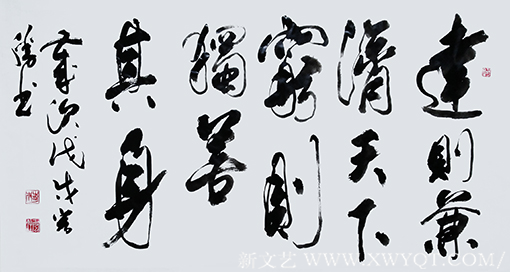 達則兼
濟天下
窮則
獨善
其身
歲次戊戌
書
新文艺 WWW.XWYQ1.COM/